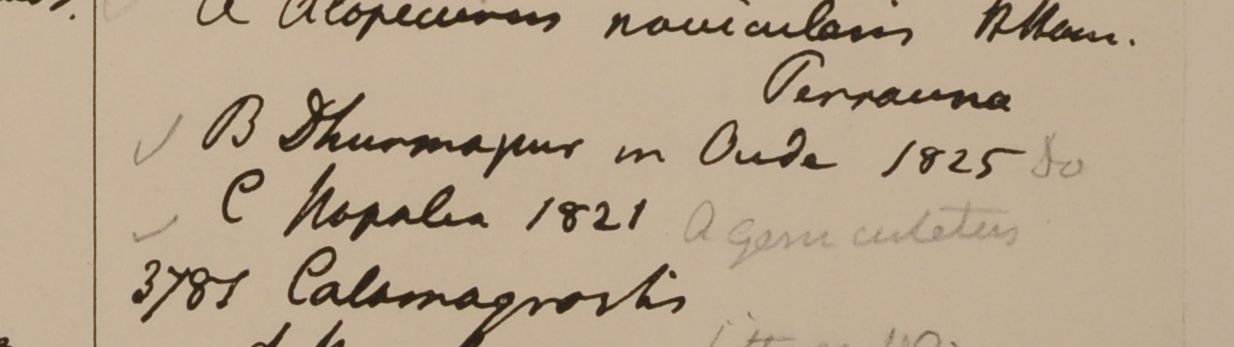 A Alopecurus navicularis BHam.
Perrauna
B Dhurmapur in Oude 1825 Do
C Napalea 1821 A geniculatus
3781 Calamagrostis